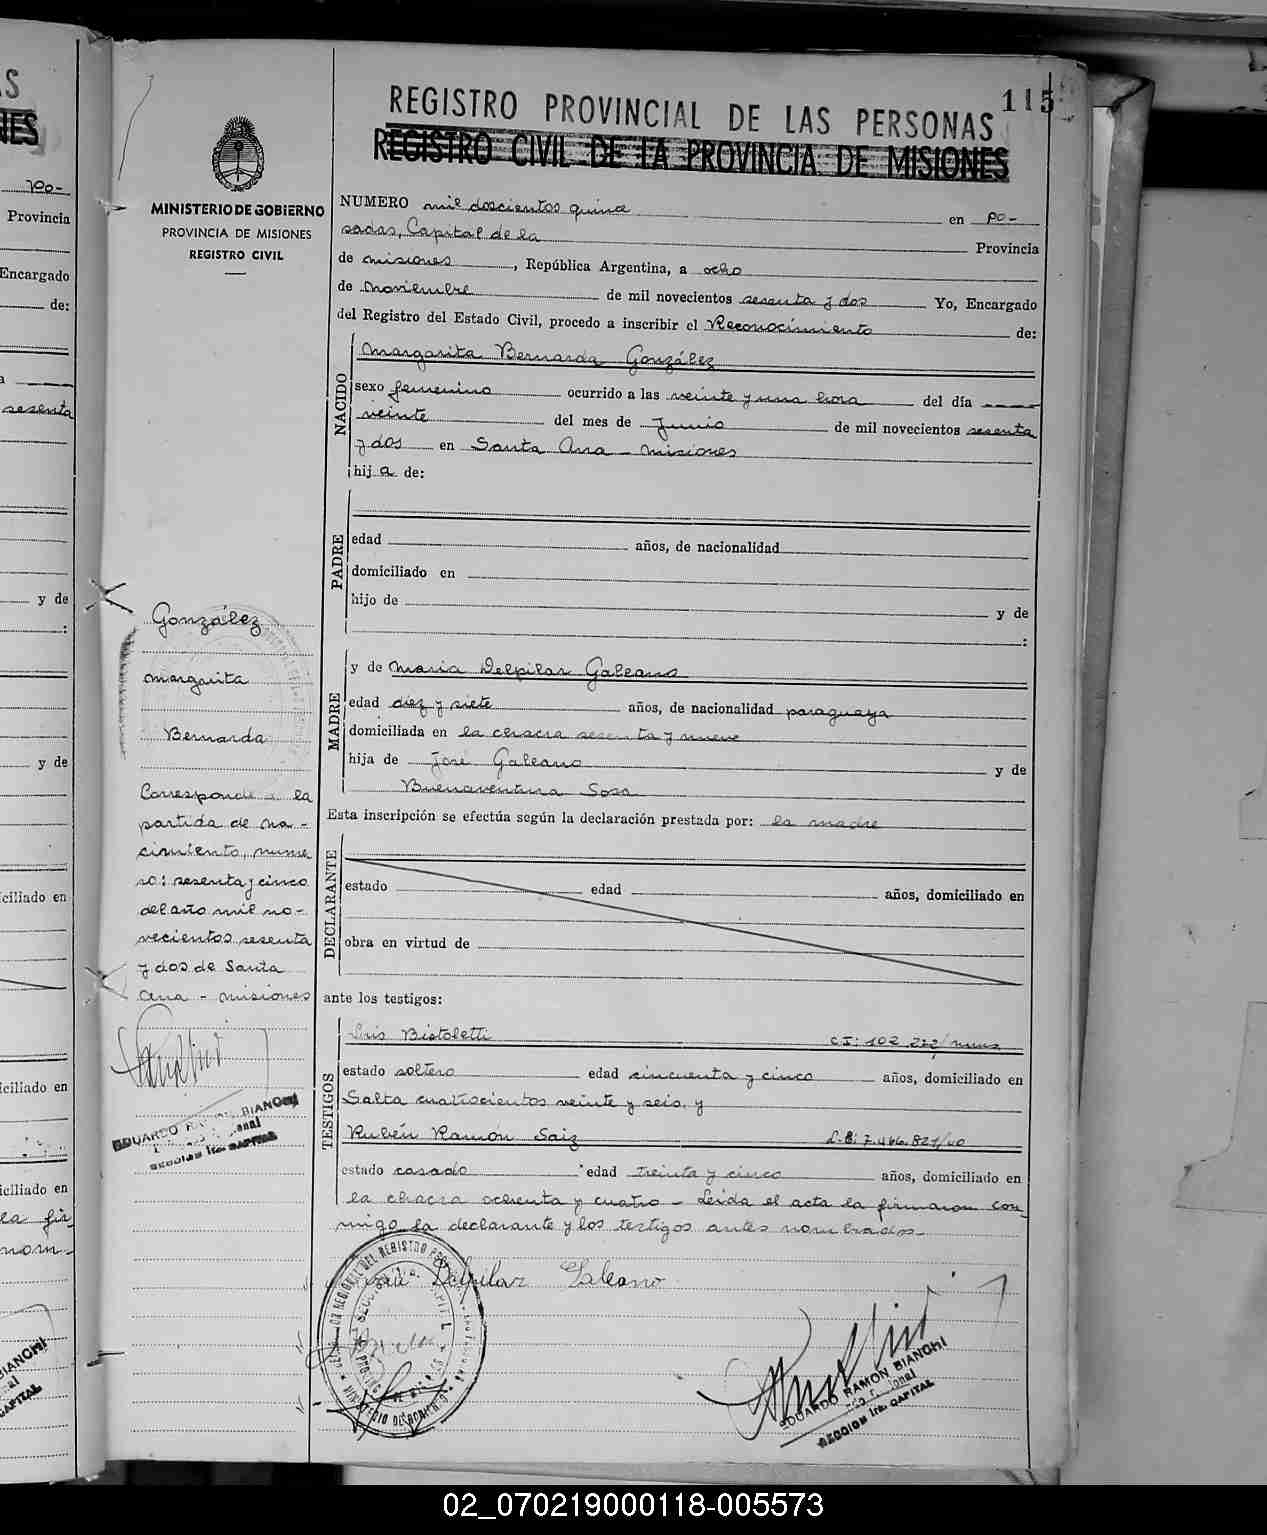 115
REGISTRO PROVINCIAL DE LAS PERSONAS
REGISTRO CIVIL DE LA PROVINCIA DE MISIONES
MINISTERIO DE GOBIERNO
PROVINCIA DE MISIONES
REGISTRO CIVIL
NUMERO mil doscientos quince en Po-
sadas, Capital de la Provincia
de misiones, República Argentina, a ocho
de Noviembre de mil novecientos sesenta y dos Yo, Encargado
del Registro del Estado Civil, procedo a inscribir el Reconocimiento de:
NACIDO
Margarita Bernarda González
sexo femenino ocurrido a las veinte y una hora del día
veinte del mes de Junio de mil novecientos sesenta
y dos en Santa Ana - Misiones
hija de:
PADRE
edad años, de nacionalidad
domiciliado en
hijo de y de
:
MADRE
y de Maria Delpilar Galeano
edad diez y siete años, de nacionalidad paraguaya
domiciliada en la chacra sesenta y nueve
hija de José Galeano y de
Buenaventura Sosa
Esta inscripción se efectúa según la declaración prestada por: la madre
DECLARANTE
estado edad años, domiciliado en
obra en virtud de
ante los testigos:
TESTIGOS
Luis Bistoletti C.I: 102.222/mnes
estado soltero edad cincuenta y cinco años, domiciliado en
Salta cuatrocientos veinte y seis, y
Rubén Ramón Saiz L.E: 7.466.821/40
estado casado edad treinta y cinco años, domiciliado en
la chacra ochenta y cuatro - Leida el acta la firmaron con-
migo la declarante y los testigos antes nombrados-
Delpilar Galeano
EDUARDO RAMON BIANCHI
SECCION 1ra. CAPITAL
González
Margarita
Bernarda
Corresponde a la
partida de na-
cimiento, nume
ro: sesenta y cinco
del año mil no-
vecientos sesenta
y dos de Santa
Ana - Misiones
EDUARDO RAMON BIANCHI
SECCION 1ra. CAPITAL
Provincia
Encargado
de:
sesenta
y de
:
y de
ciliado en
iciliado en
iciliado en
la fir-
nom-
02_070219000118-005573